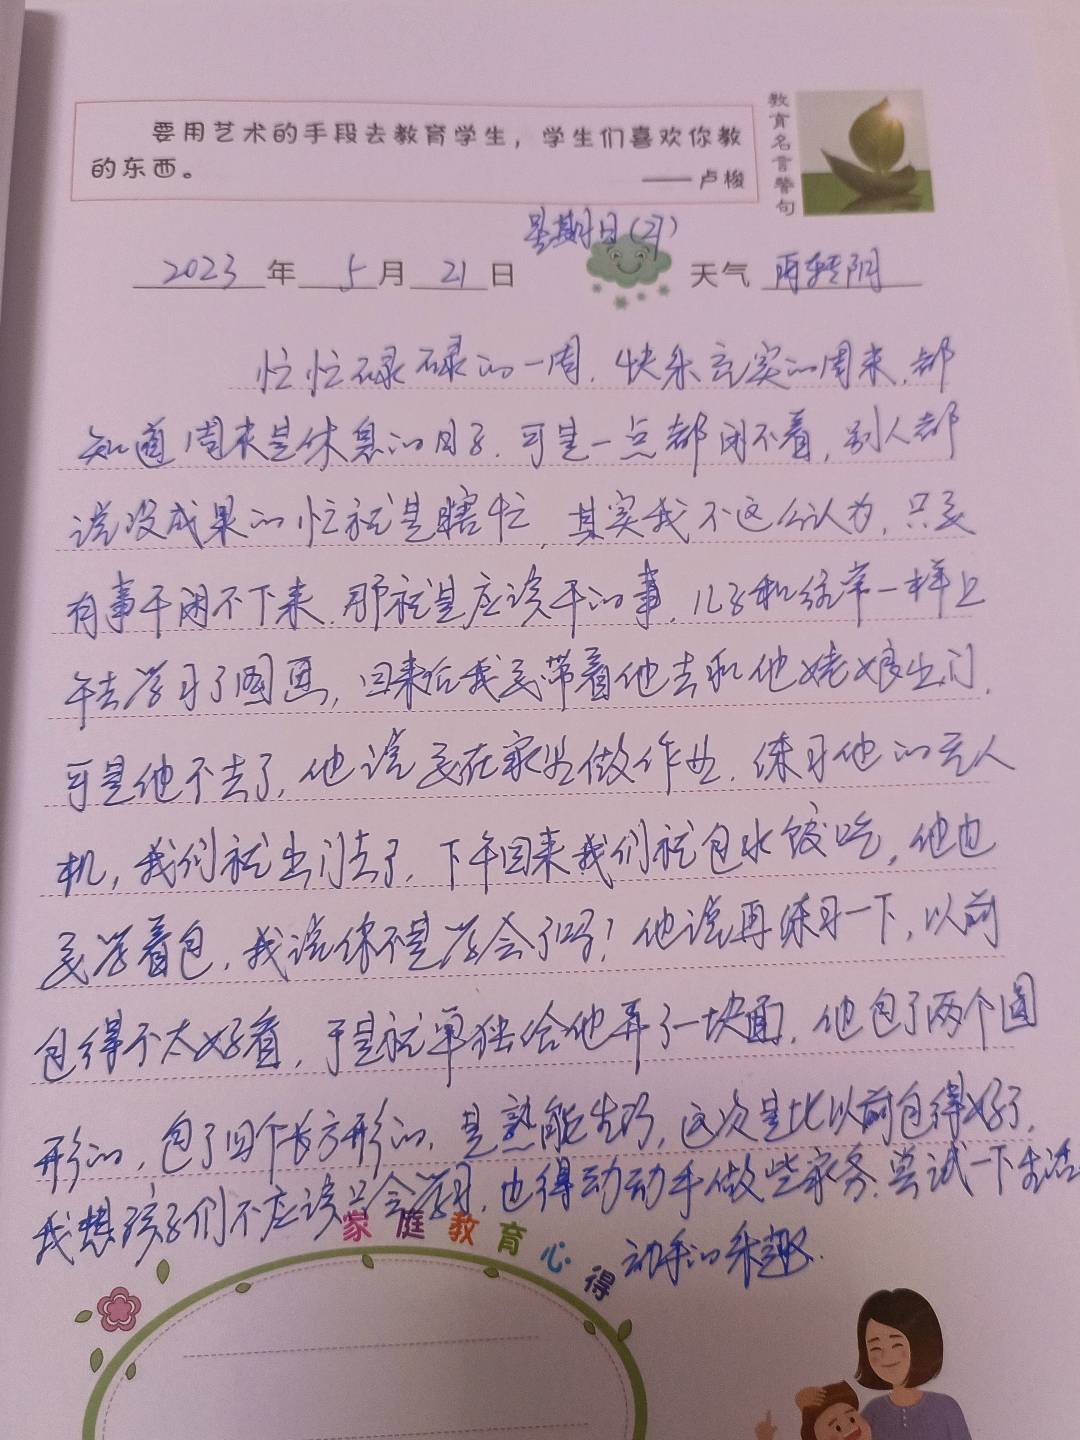 要用艺术的手段去教育学生，学生们喜欢你教
的东西。
——卢梭
教育名言警句
星期日(21)
2023年5月21日 天气 雨转阴
忙忙碌碌的一周，快乐充实的周末，都
知道周末是休息的日子，可是一点都闲不着，别人都
说没成果的忙就是瞎忙，其实我不这么认为，只要
有事干闲不下来，那就是应该干的事，儿子和往常一样上
午去学习了图画，回来后我要带着他去和他姥娘出门，
可是他不去了，他说要在家里做作业，练习他的无人
机，我们就出门去了，下午回来我们就包水饺吃，他也
要学着包，我说你不是学会了吗！他说再练习一下，以前
包得不太好看，于是就单独给他弄了一块面，他包了两个圆
形的，包了四个长方形的，是熟能生巧，这次是比以前包得好了，
我想孩子们不应该只会学习，也得动动手做些家务，尝试一下生活
动手的乐趣.
家庭教育心得